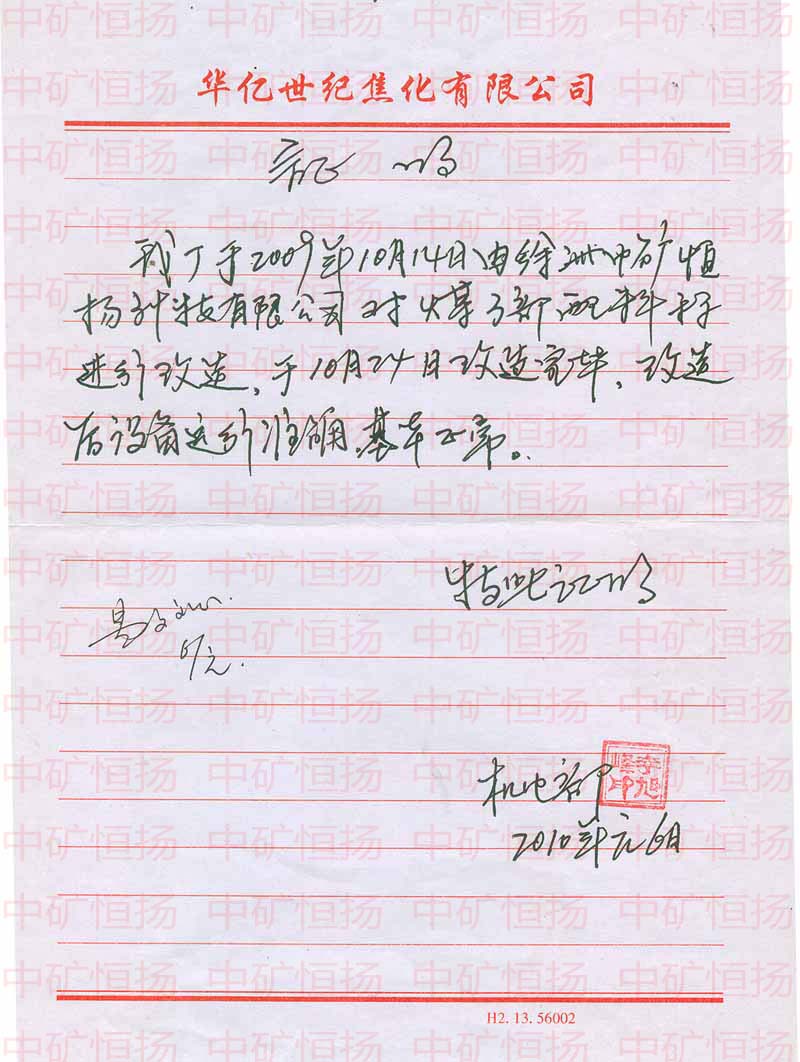 华亿世纪焦化有限公司
证 明
我厂于2009年10月14日由徐洲中矿恒
扬科技有限公司对 备 部配料秤
进行改造，于10月24日改造完毕，改造
后设备运行准确，基本正常。
特此证明
机电部
2010年元6日
H2. 13. 56002
中矿恒扬